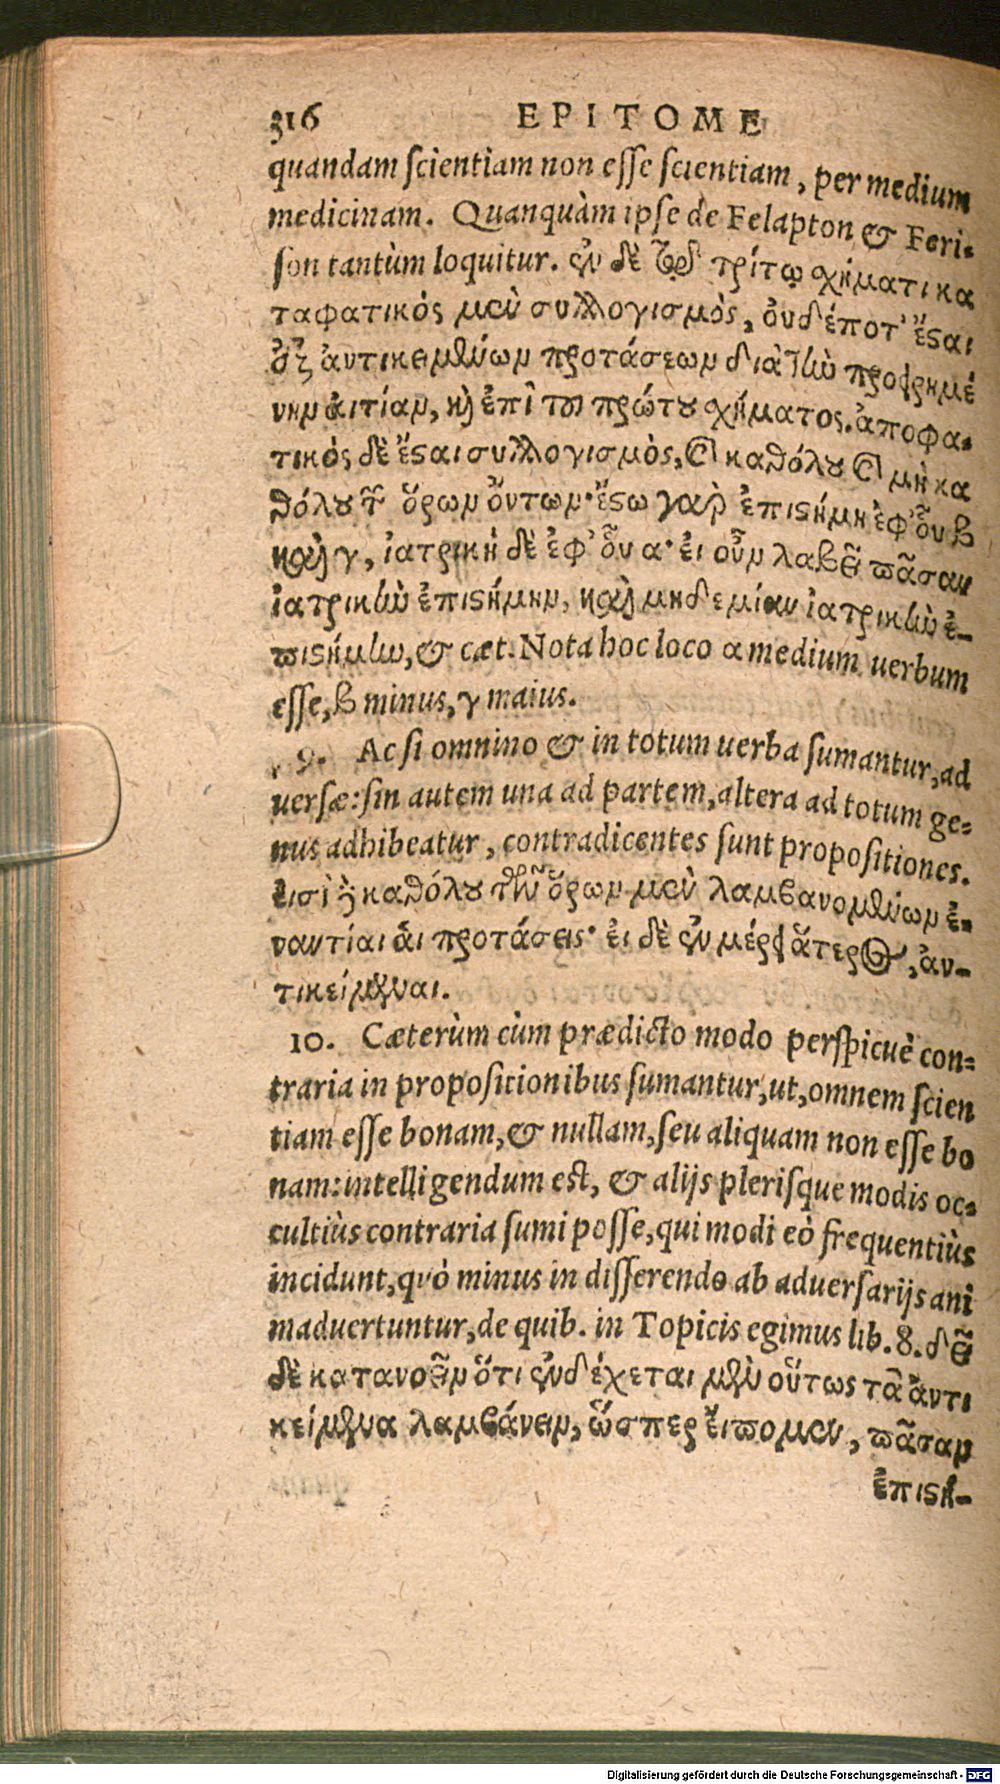 316 EPITOME
quandam scientiam non esse scientiam, per medium
medicinam. Quanquàm ipse de Felapton & Feri-
son tantùm loquitur. ἐν δὲ τῷ τρίτῳ σχήματι κα
ταφατικὸς μὲν συλλογισμὸς, οὐδέποτ' ἔσται
ἐξ ἀντικειμένων προτάσεων διὰ τὴν προειρημέ
νην αἰτίαν, καὶ ἐπὶ τοῦ πρώτου σχήματος. ἀποφα-
τικὸς δὲ ἔσται συλλογισμὸς, καὶ καθόλου καὶ μὴ κα
θόλου τῶν ὅρων ὄντων· ἔστω γὰρ ἐπιστήμη ἐφ' οὗ β
καὶ γ, ἰατρικὴ δὲ ἐφ' οὗ α· εἰ οὖν λαβεῖ πᾶσαν
ἰατρικὴν ἐπιστήμην, καὶ μηδεμίαν ἰατρικὴν ἐ-
πιστήμην, & cæt. Nota hoc loco α medium uerbum
esse, β minus, γ maius.
9. Ac si omnino & in totum uerba sumantur, ad
uersæ: sin autem una ad partem, altera ad totum ge-
nus adhibeatur, contradicentes sunt propositiones.
εἰσὶ δὲ καθόλου τῶν ὅρων μὲν λαμβανομένων ἐ-
ναντίαι αἱ προτάσεις· εἰ δὲ ἐν μέρει ἅτερος, ἀν-
τικείμεναι.
10. Cæterùm cùm prædicto modo perspicuè con-
traria in propositionibus sumantur, ut, omnem scien
tiam esse bonam, & nullam, seu aliquam non esse bo
nam: intelligendum est, & alijs plerisque modis oc-
cultiùs contraria sumi posse, qui modi eò frequentiùs
incidunt, quò minus in disserendo ab aduersarijs ani
maduertuntur, de quib. in Topicis egimus lib. 8. δεῖ
δὲ κατανοεῖν ὅτι ἐνδέχεται μὲν οὕτως τὰ ἀντι
κείμενα λαμβάνειν, ὥσπερ εἴπομεν, πᾶσαν
ἐπιστή-
Digitalisierung gefördert durch die Deutsche Forschungsgemeinschaft - DFG